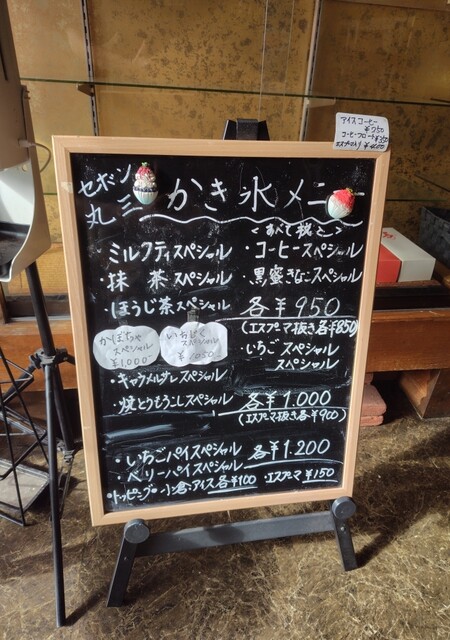 アイスコーヒー
¥250
コーヒーフロート¥350
セボン
丸三
かき氷メニー
＜すべて税込＞
ミルクティスペシャル
・コーヒースペシャル
・抹茶スペシャル
・黒蜜きなこスペシャル
・ほうじ茶スペシャル
各¥950
(エスプーマ抜き各¥850)
かぼちゃ
スペシャル
¥1,000-
いちじく
スペシャル
¥1050
・いちごスペシャル
スペシャル
・キャラメルダレスペシャル
・焼とうもろこしスペシャル
各¥1,000
(エスプーマ抜き各¥900)
・いちごパイスペシャル
・ベリーパイスペシャル
各¥1.200
・トッピング・小倉・アイス各¥100 エスプーマ¥150